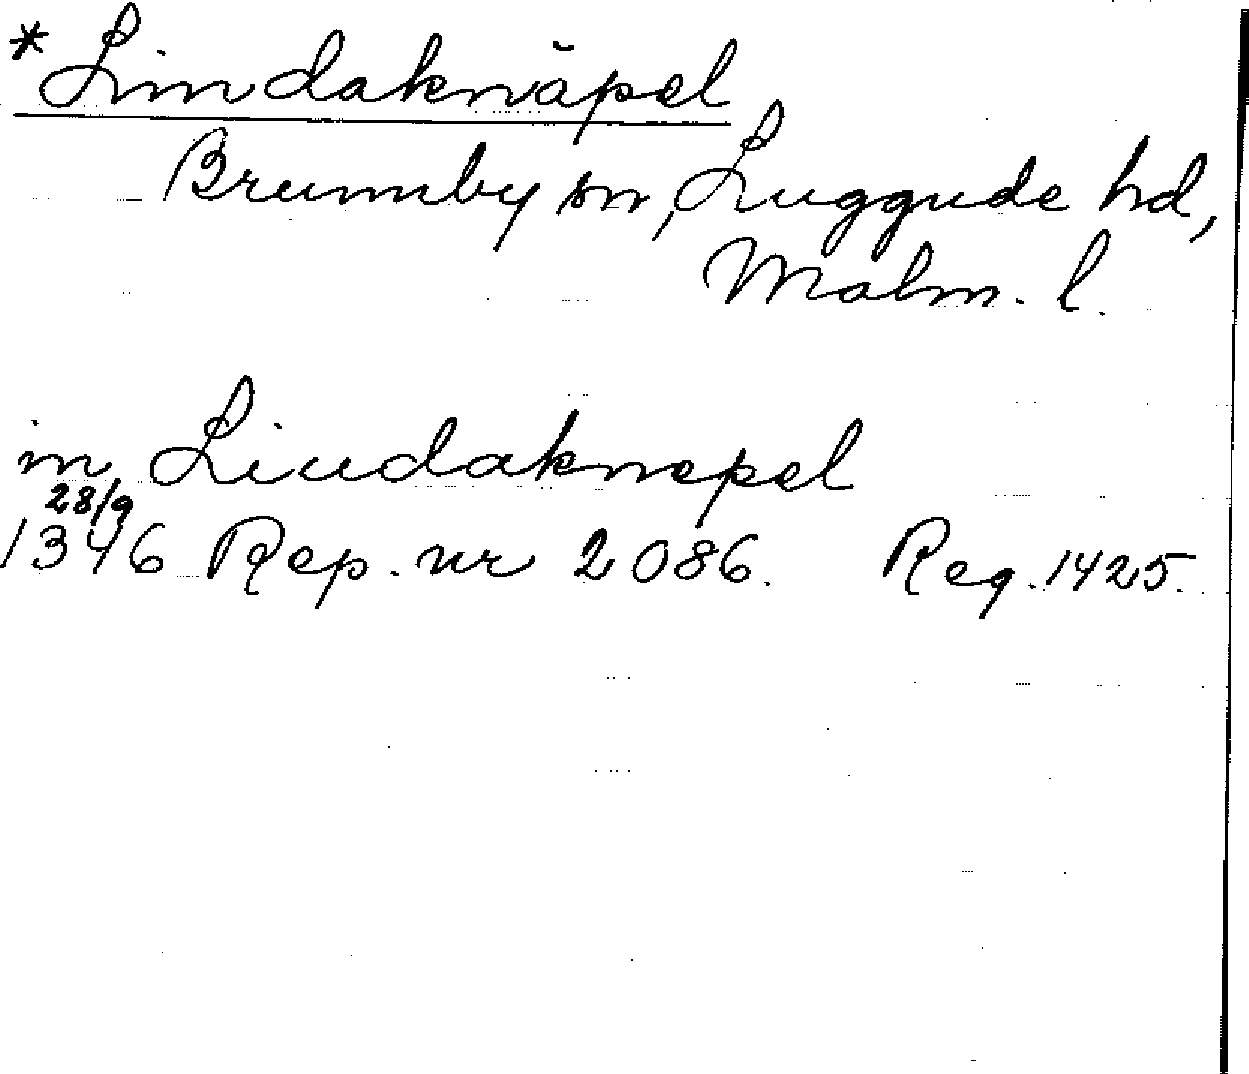 * Lindaknäpel
Brunnby sn, Luggude hd,
Malm. l.
in Lindaknepel
28/9
1346 Rep. nr 2086. Reg. 1425.